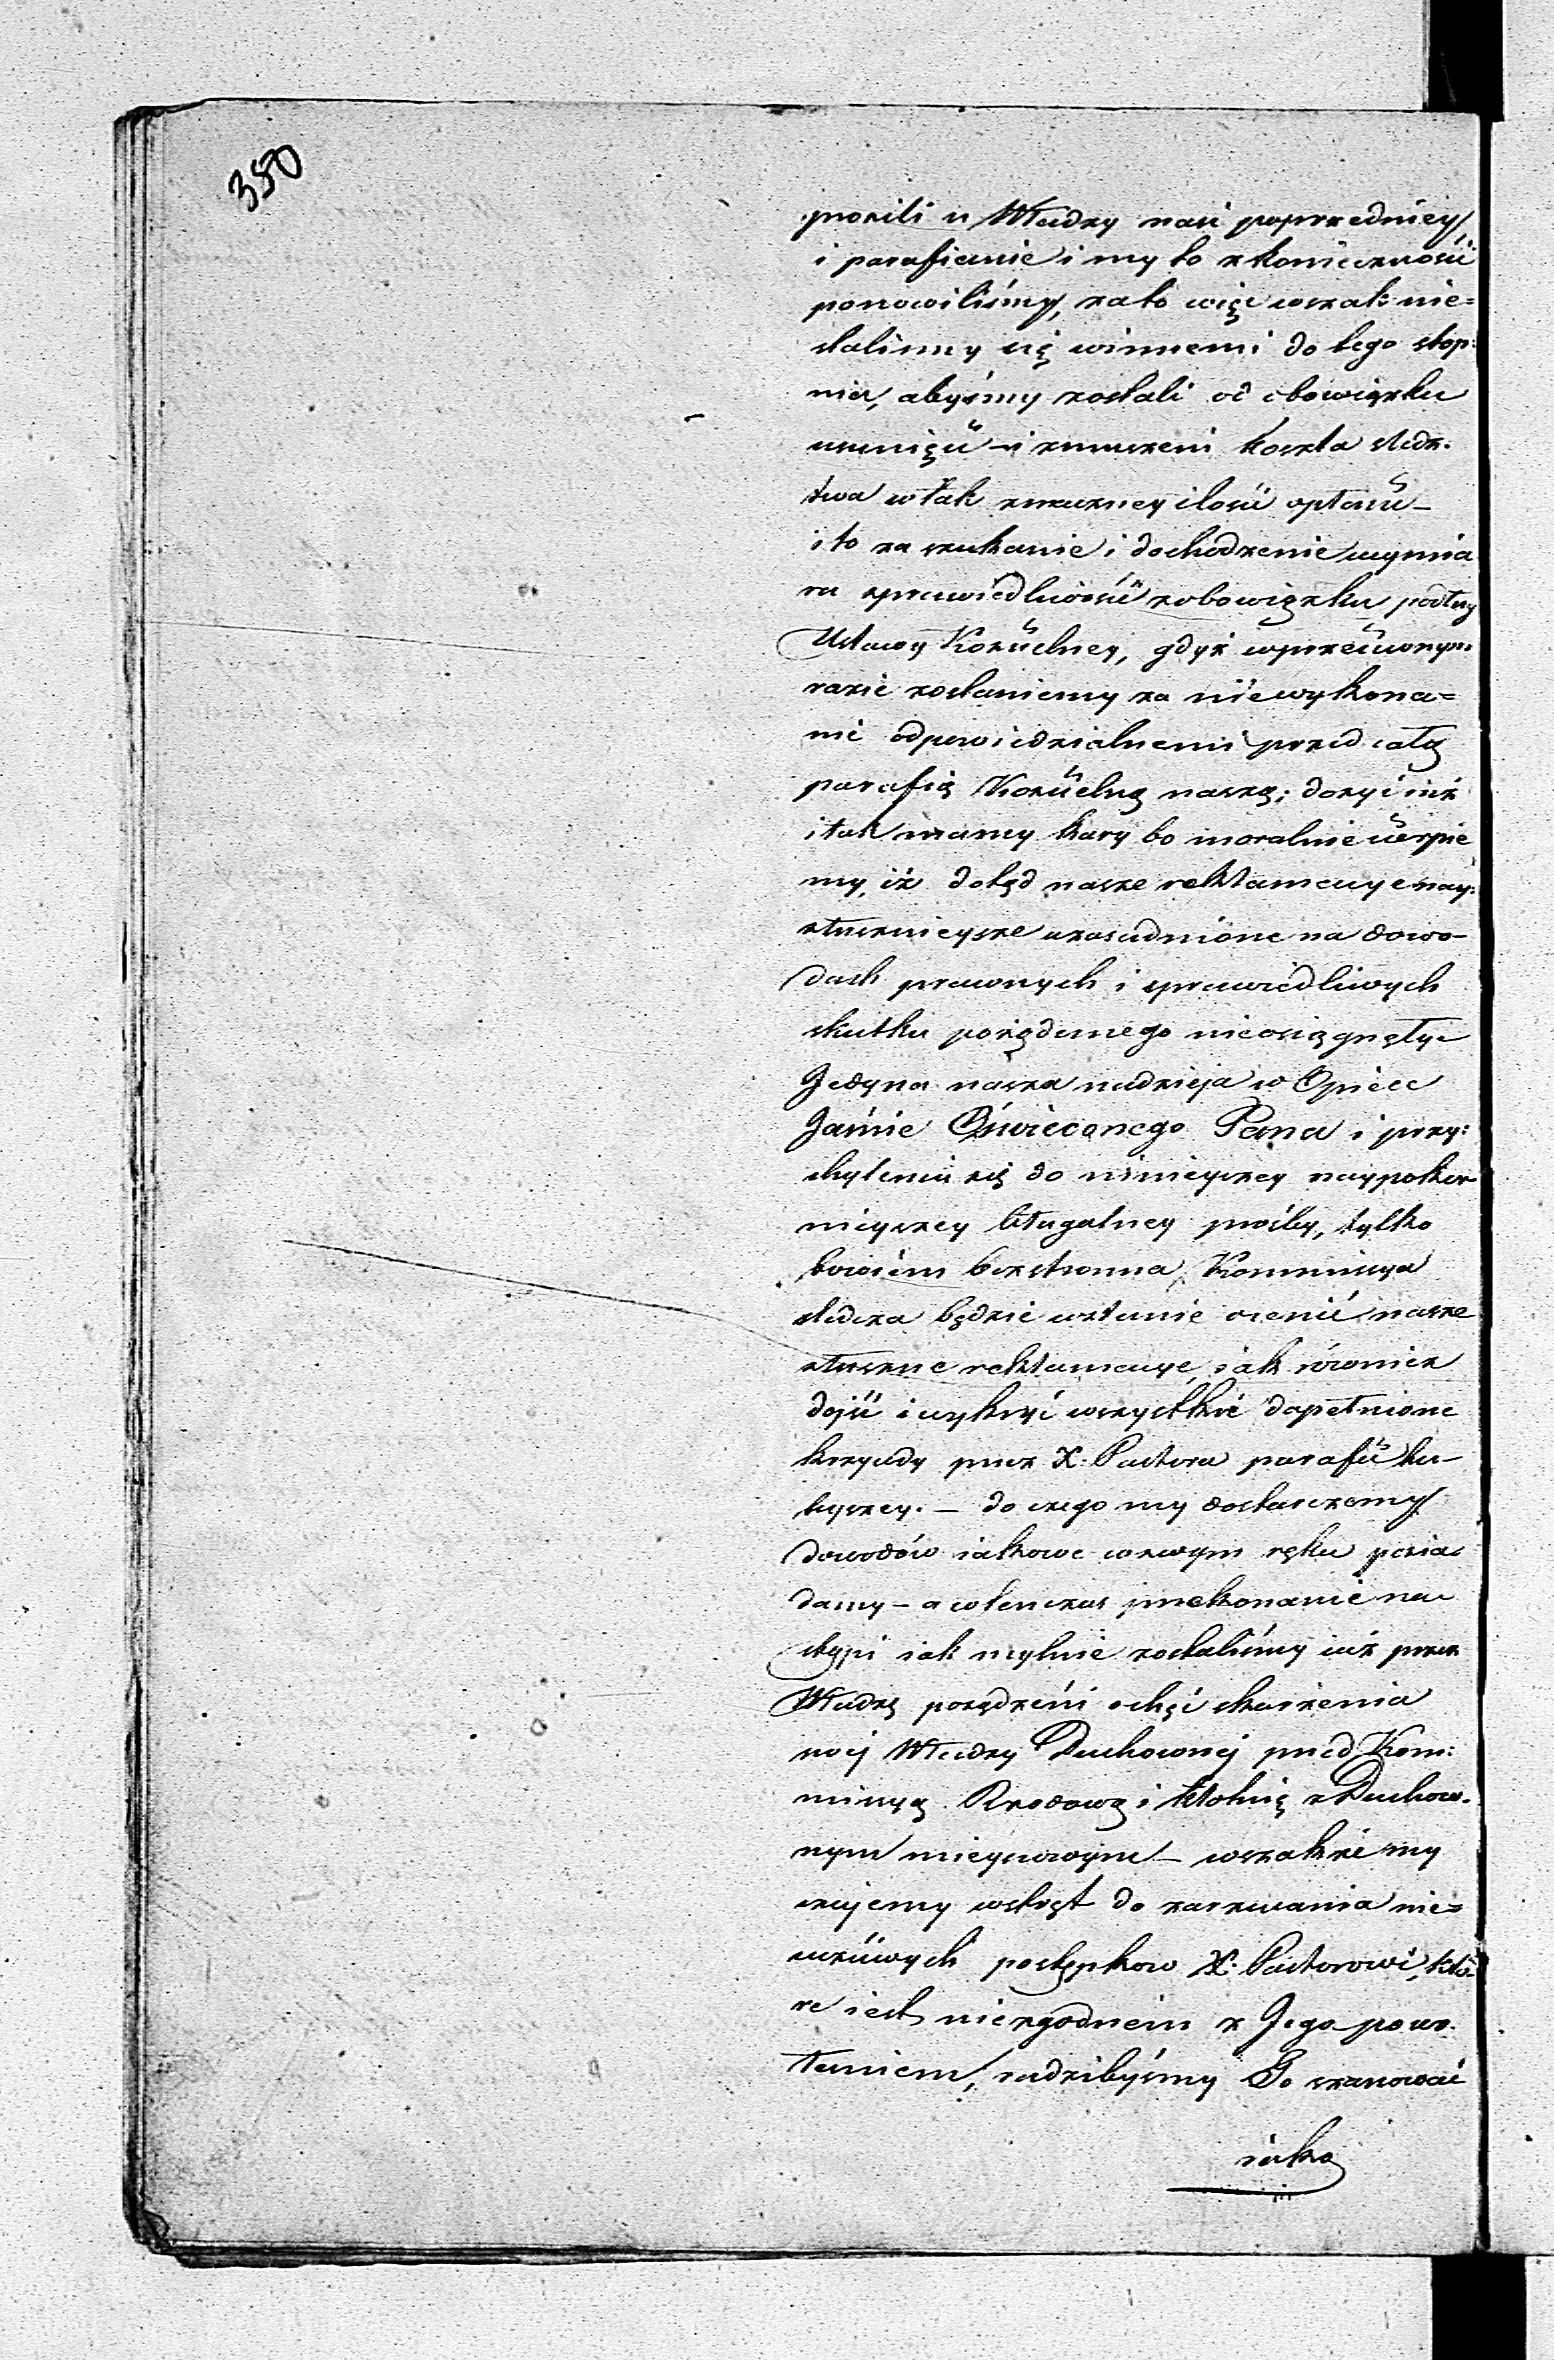 350
prosili u Władzy nasi poprzednicy,
i parafianie i my to z konieczności
ponowiliśmy, za to więc wszak nie=
staliśmy się winnemi do tego stop:
nia, abyśmy zostali od obowiązku
usunięci – i zmuszeni koszta śledz.
twa w tak znaczney ilości opłacić –
i to za szukanie i dochodzenie wymia
ru sprawiedliwości z obowiązku podług
Ustawy Kościelney, gdyż w przeciwnym
razie zostaniemy za niewykona=
nie odpowiedzialnemi przed całą
parafią Kościelną naszą; dosyć już
i tak mamy kary bo moralnie cierpie
my, iż dotąd nasze reklamacye nay:
słusznieysze uzasadnione na dowo-
dach prawnych i sprawiedliwych
skutku pożądanego nieosiągnęły –
Jedyna nasza nadzieja w Opiece
Jaśnie Oświeconego Pana i przy:
chyleniu się do ninieyszey naypokor
nieyszey błagalney prośby, tylko
bowiem bezstronna Kommissya
śledcza będzie w stanie ocenić nasze
słuszne reklamacye, jak również
dojść i wykryć wszystkie dopełnione
krzywdy przez X. Pastora parafii tu-
teyszey. – do czego my dostarczemy
dowodów jakowe w swym ręku posia
damy – a wtenczas przekonanie na
stąpi jak mylnie zostaliśmy już przez
Władzę posądzeni o chęć skarżenia
swej Władzy Duchownej przed Kom:
missyą Rządową i kłótnię z Duchow.
nym mieyscowym – wszakże my
czujemy wstręt do zarzucania nie=
uczciwych postępkow X. Pastorowi, któ
re jest niezgodnem z Jego powo.
łaniem, radzibyśmy Go szanować
jako